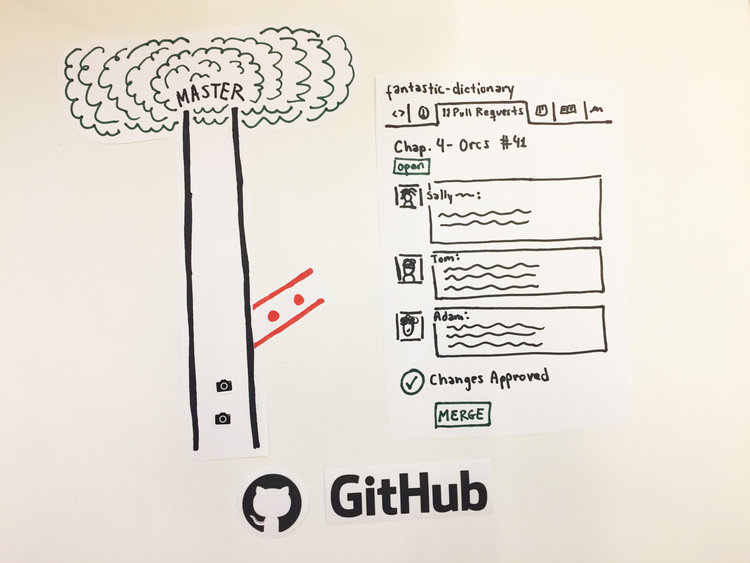 MASTER
fantastic-dictionary
<> Pull Requests
Chap. 4- Orcs #41
open
Sally:
Tom:
Adam:
Changes Approved
MERGE
GitHub